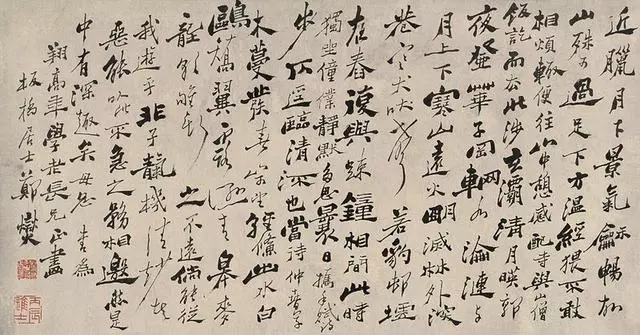 近臘月下景氣龢暢故
山殊可過足下方温經猥不敢
相煩輒便往山中憩感配寺與山僧
飯訖而去北涉玄灞清月暎郭
夜登華子岡輞水淪漣與
月上下寒山遠火明滅林外深
巷寒犬吠聲若豹邨墟
夜舂復與疎鐘相間此時
獨坐僮僕靜默多思曩日攜手賦詩
步仄逕臨清流也當待仲春草
木蔓發春山可望輕鯈出水白
鷗矯翼露濕青皋麥
隴朝雊斯之不遠倘能從
我遊乎非子天機清妙者
惡能以此不急之務相邀然是
中有深趣矣毋忽 書為
翔高年學老長兄正
板橋居士鄭燮
丙辰進士